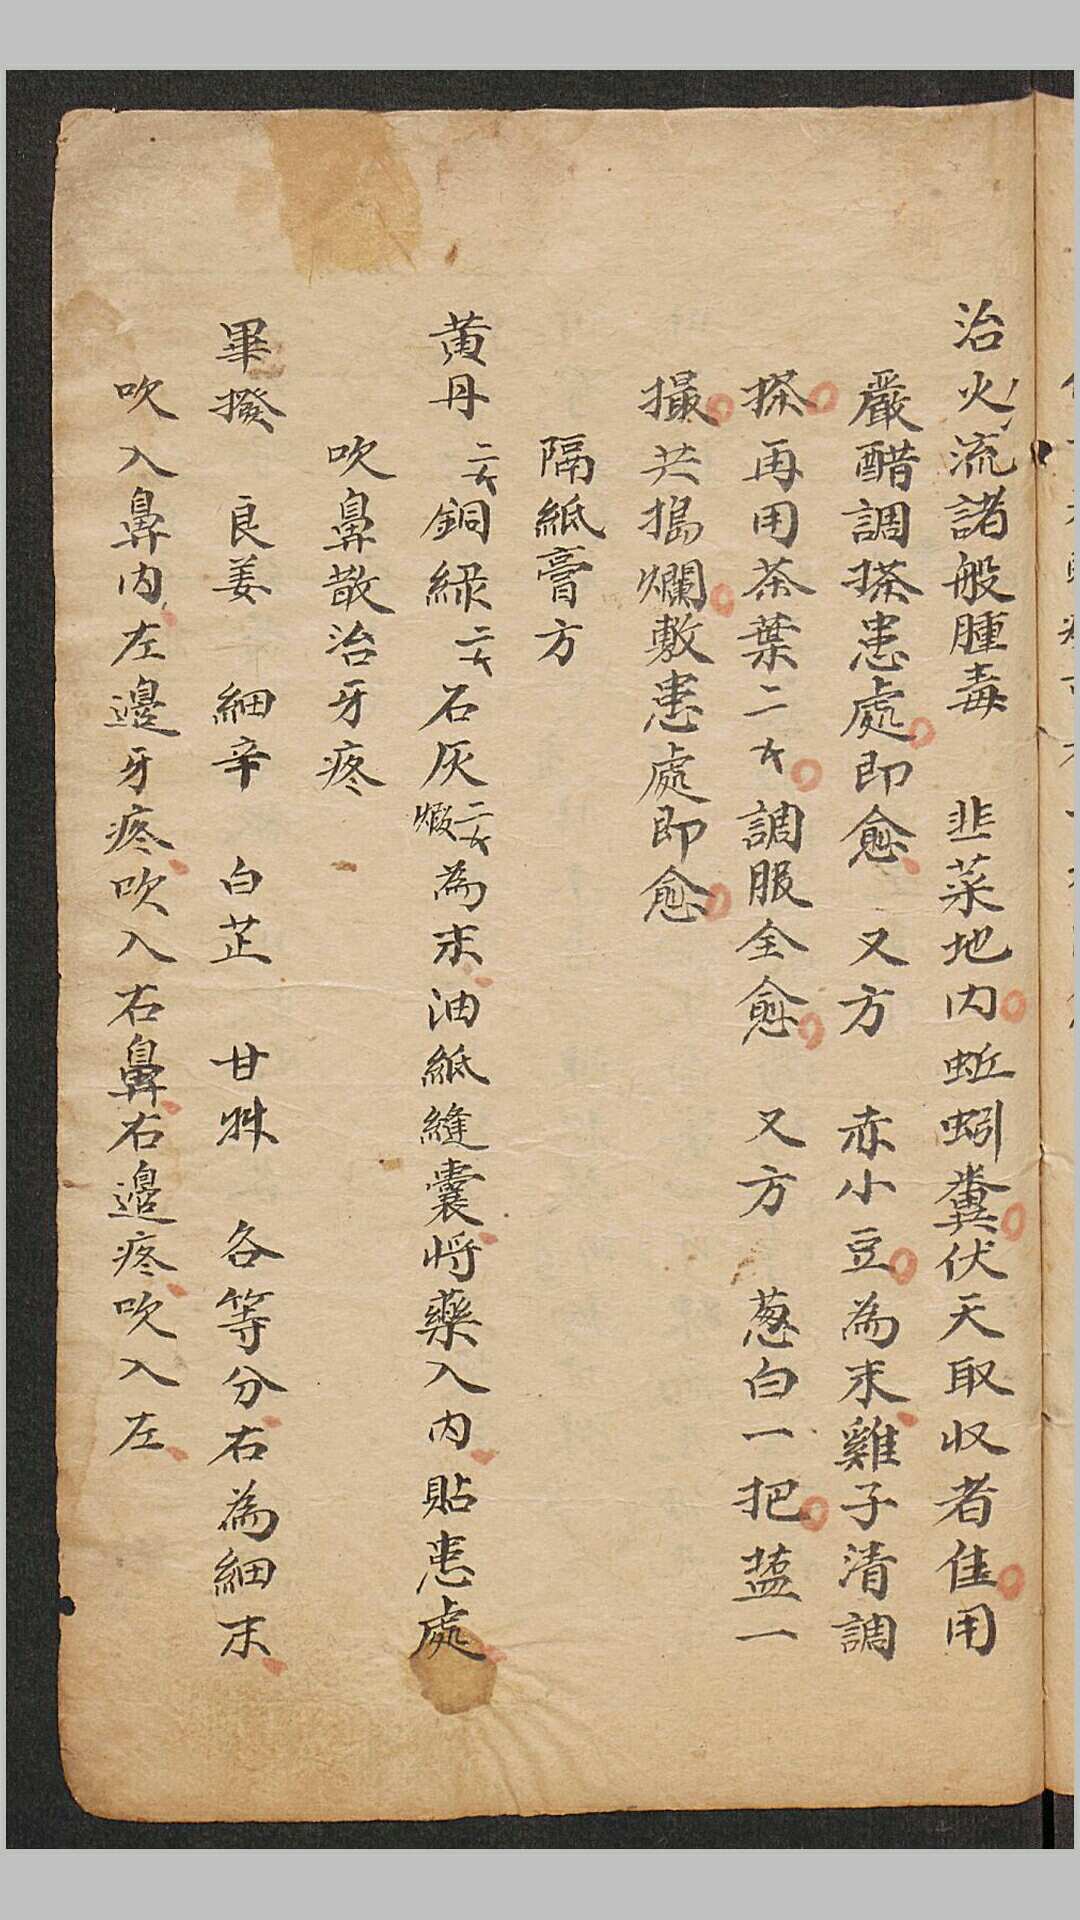 治火流諸般腫毒 韭菜地内蚯蚓糞伏天取收者佳用
嚴醋調搽患處即愈 又方 赤小豆為末雞子清調
搽再用茶葉二仒調服全愈 又方 葱白一把蓝一
撮共搗爛敷患處即愈
隔紙膏方
黄丹 銅绿 石灰 煅 為末油紙縫囊將藥入内貼患處
吹鼻散治牙疼
畢撥 良姜 細辛 白芷 甘艸 各等分右為細末
吹入鼻内左邊牙疼吹入右鼻右邉疼吹入左